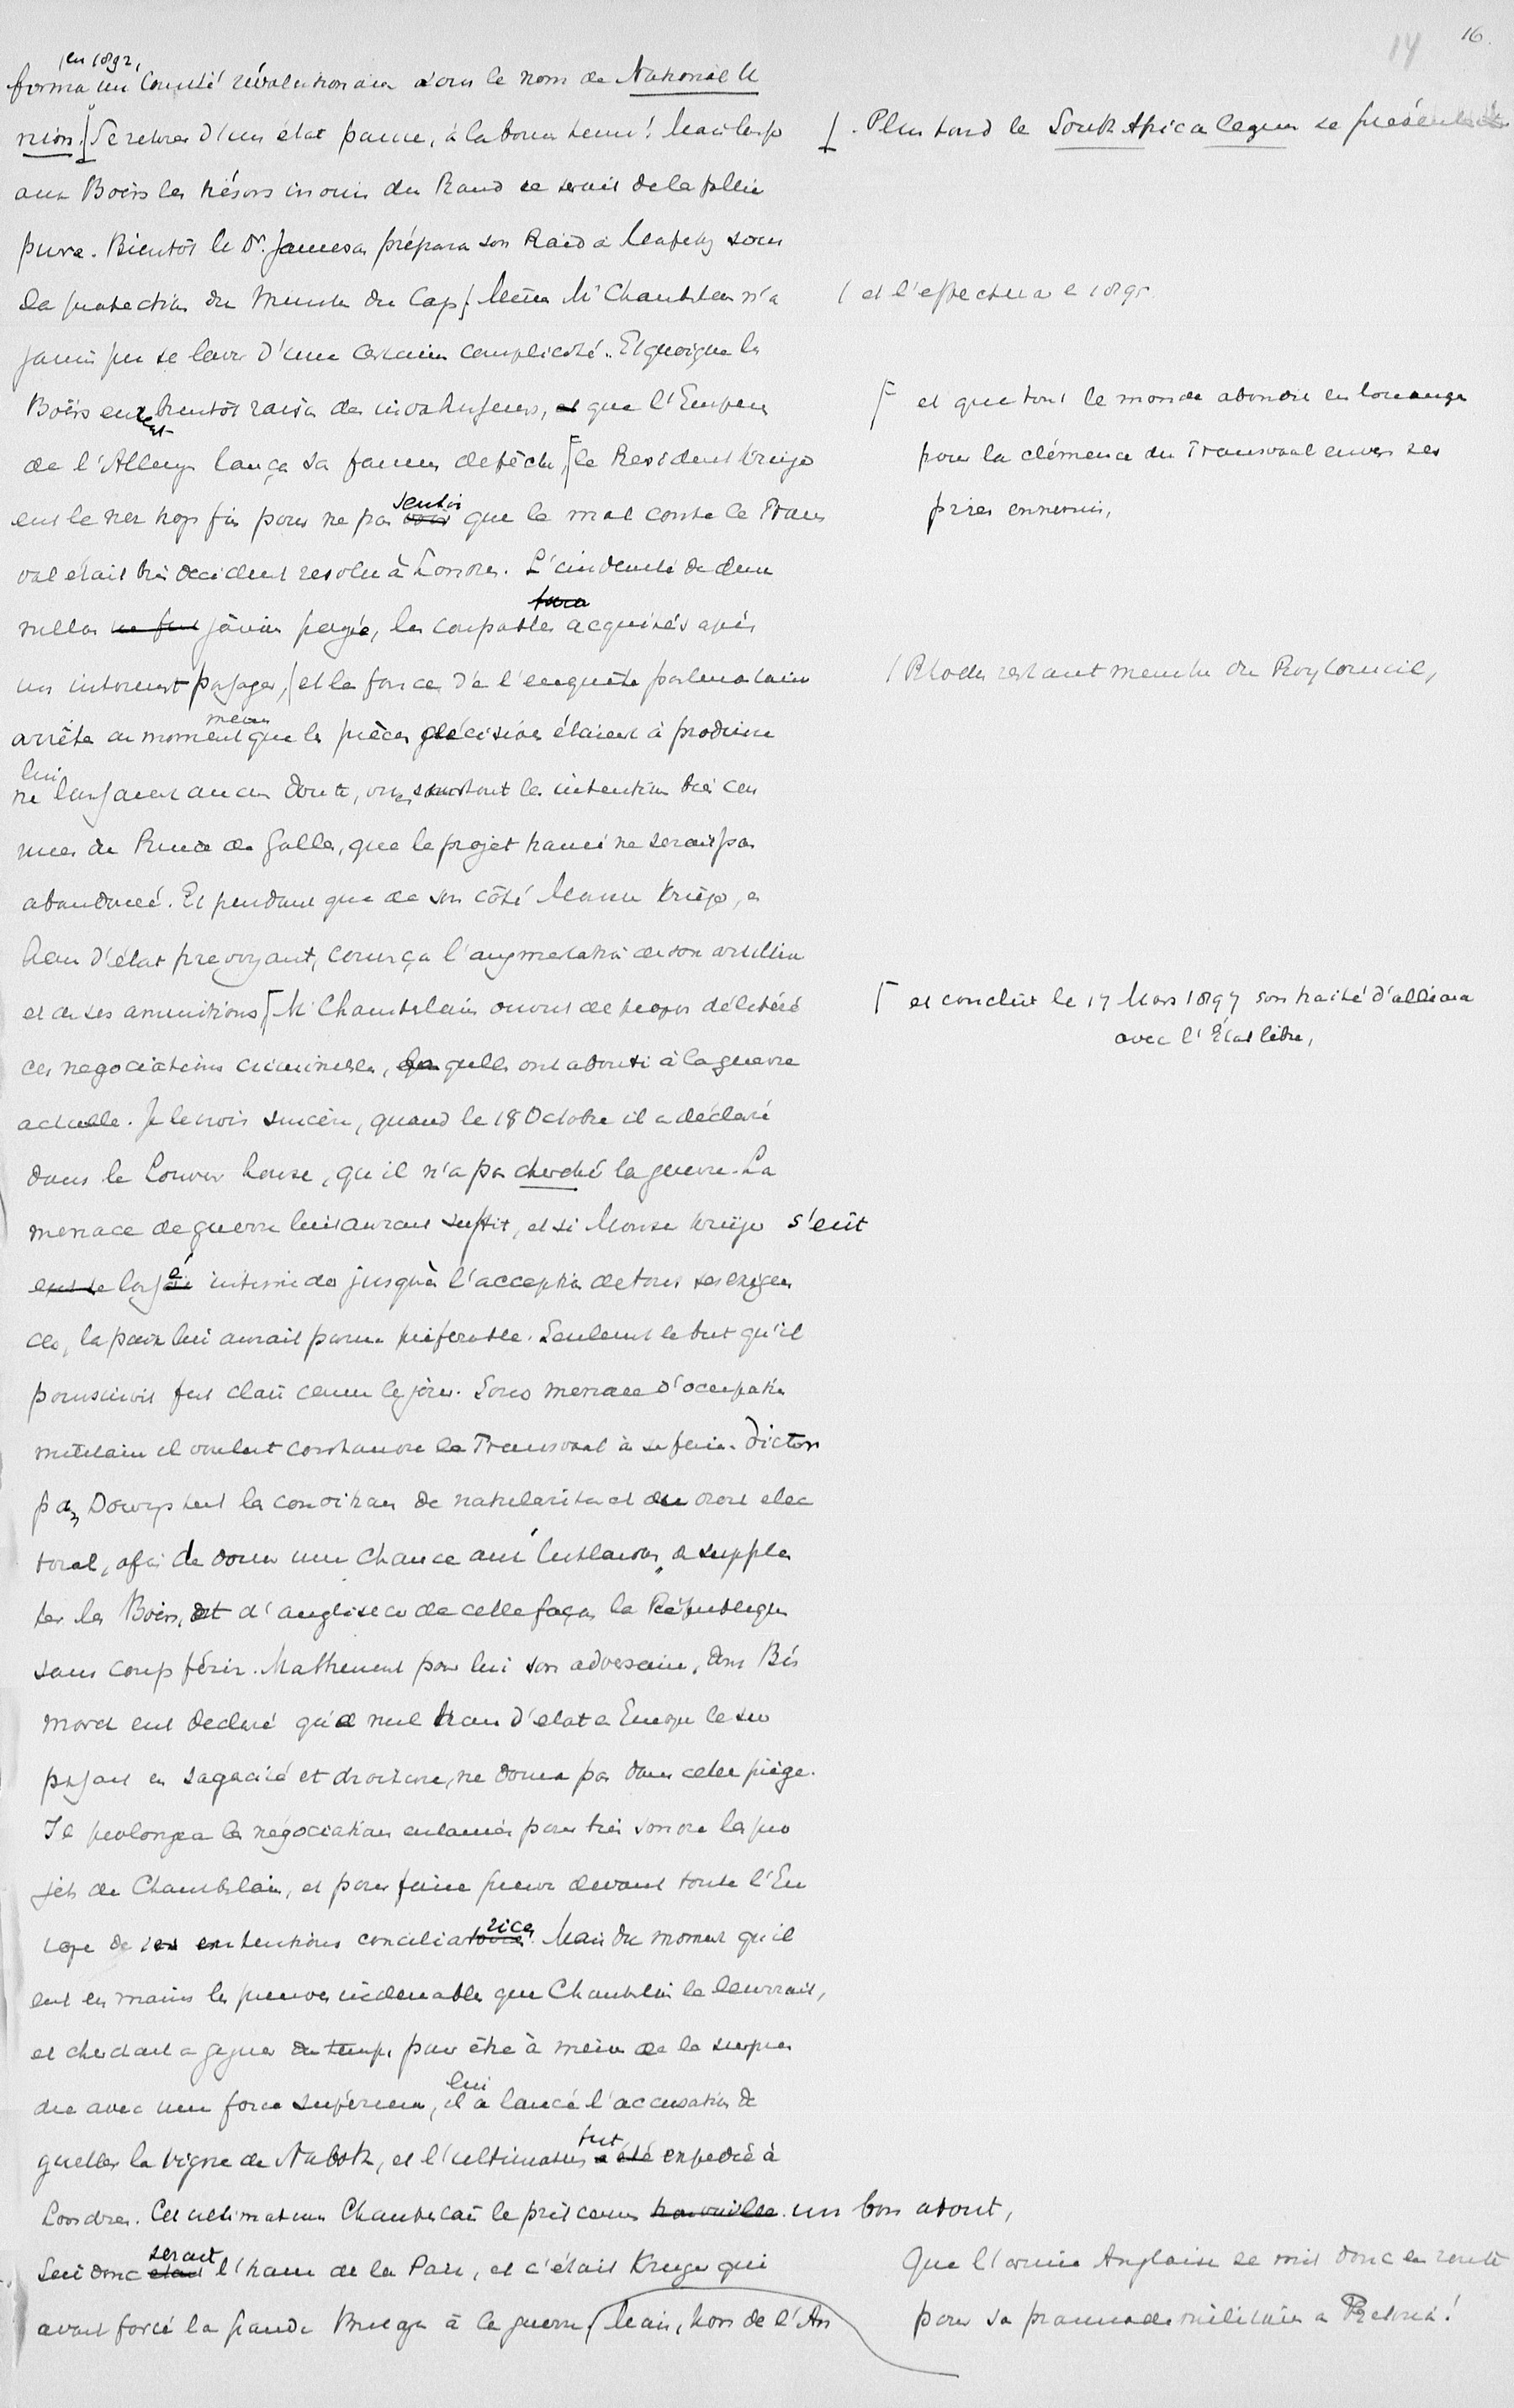 16.
14
en 1892,
forma un Comité révolutionair sous le nom de National U
nion. Se retirer d'un état pauvre, à la bonne heure! Mais laisser
aux Boërs les trésors inouis du Rand ce serait de la folie
pure. Bientôt le Dr. Jameson prépara son Raid à Mafeking sous
la protection du Ministre du Cap. Même Mr Chamberlain n'a
jamais pu se laver d'une certaine complicité. Et quoique les
Boërs eurent bientôt raison des envahisseurs, et que l'Empereur
de l'Allemagne lança sa fameuse depêche, le President Krüger
eut le nez trop fin pour ne pas sentir que le mal contre le Trans
vaal était bien decidement resolu à Londres. L'indemnité du deux
million jamais payée, les coupables acquités après
un internement passager, et la farce de l'enquête parlementaire
arrêtée au moment même que les pièces décisives étaient à produire
ne lui laissaient aucun doute, vu surtout les intentions bien con
nues du Prince de Galles, que le projet tramé ne serait pas
abandonné. Et pendant que de son côté Monsieur Krüger, en
homme d'état prevoyant, commença l'augmentation de son artillerie
et de ses amunitions Mr Chamberlain ouvrit de propos délibéré
ces negociations criminelles, qui ont abouti à la guerre
actuelle. Je le crois sincère, quand le 18 Octobre il a déclaré
dans le Lower house, qu'il n'a pas cherché la guerre. La
menace de guerre lui aurait suffit, et si Monsieur Krüger s'eût
laissé intimider jusqu'à l'acceptation de tous ses exigen
ces, la paix lui aurait parue préferable. Seulement le but qu'il
poursuivit fut clair comme le jour. Sous menace d'occupation
militaire il voulut contraindre le Transvaal à se faire dicter
par Downingstreet les conditions de naturalisation et du droit elec
toral, afin de donner une chance aux Uitlanders, de supplan
ter les Boërs, et d'angliser de cette façon la République
sans coup férir. Malheureusement pour lui son adversaire, dont Bis
marck eut declaré qu'à nul homme d'etat en Europe le sur
passait en sagacité et droiture, ne donna pas dans cette piège.
Il prolongea les négociations entamées pour bien sonder les pro
jets de Chamberlain, et pour faire preuve devant toute l'Eu
rope de ses intentions conciliatrices. Mais du moment qu'il
eut en mains les preuves indeniables que Chamberlain le leurrait,
et cherchait à gagner du temps pour être à même de le surpren
dre avec une force supérieure, il lui a lancé l'accusation de
guetter la vigne de Naboth, et l'ultimatum fut expedié à
Londres. Cet ultimatum Chamberlain le prit comme un bon atout,
Lui donc serait l'homme de la Paix, et c'était Kruger qui
avait forcé la Grande Bretagne à la guerre. Mais, hors de l'An
. Plus tard le South Africa league se
et l'effectua en 1895
et que tout le monde abondit en louanges
pour la clémence du Transvaal envers ses
pires ennemis,
Rhodes restant membre du Privy Council,
et conclût le 17 Mars 1897 son traité d'alliance
avec l'État libre,
Que l'armée Anglaise se mit donc en route
pour sa promenade militaire à Pretoria!